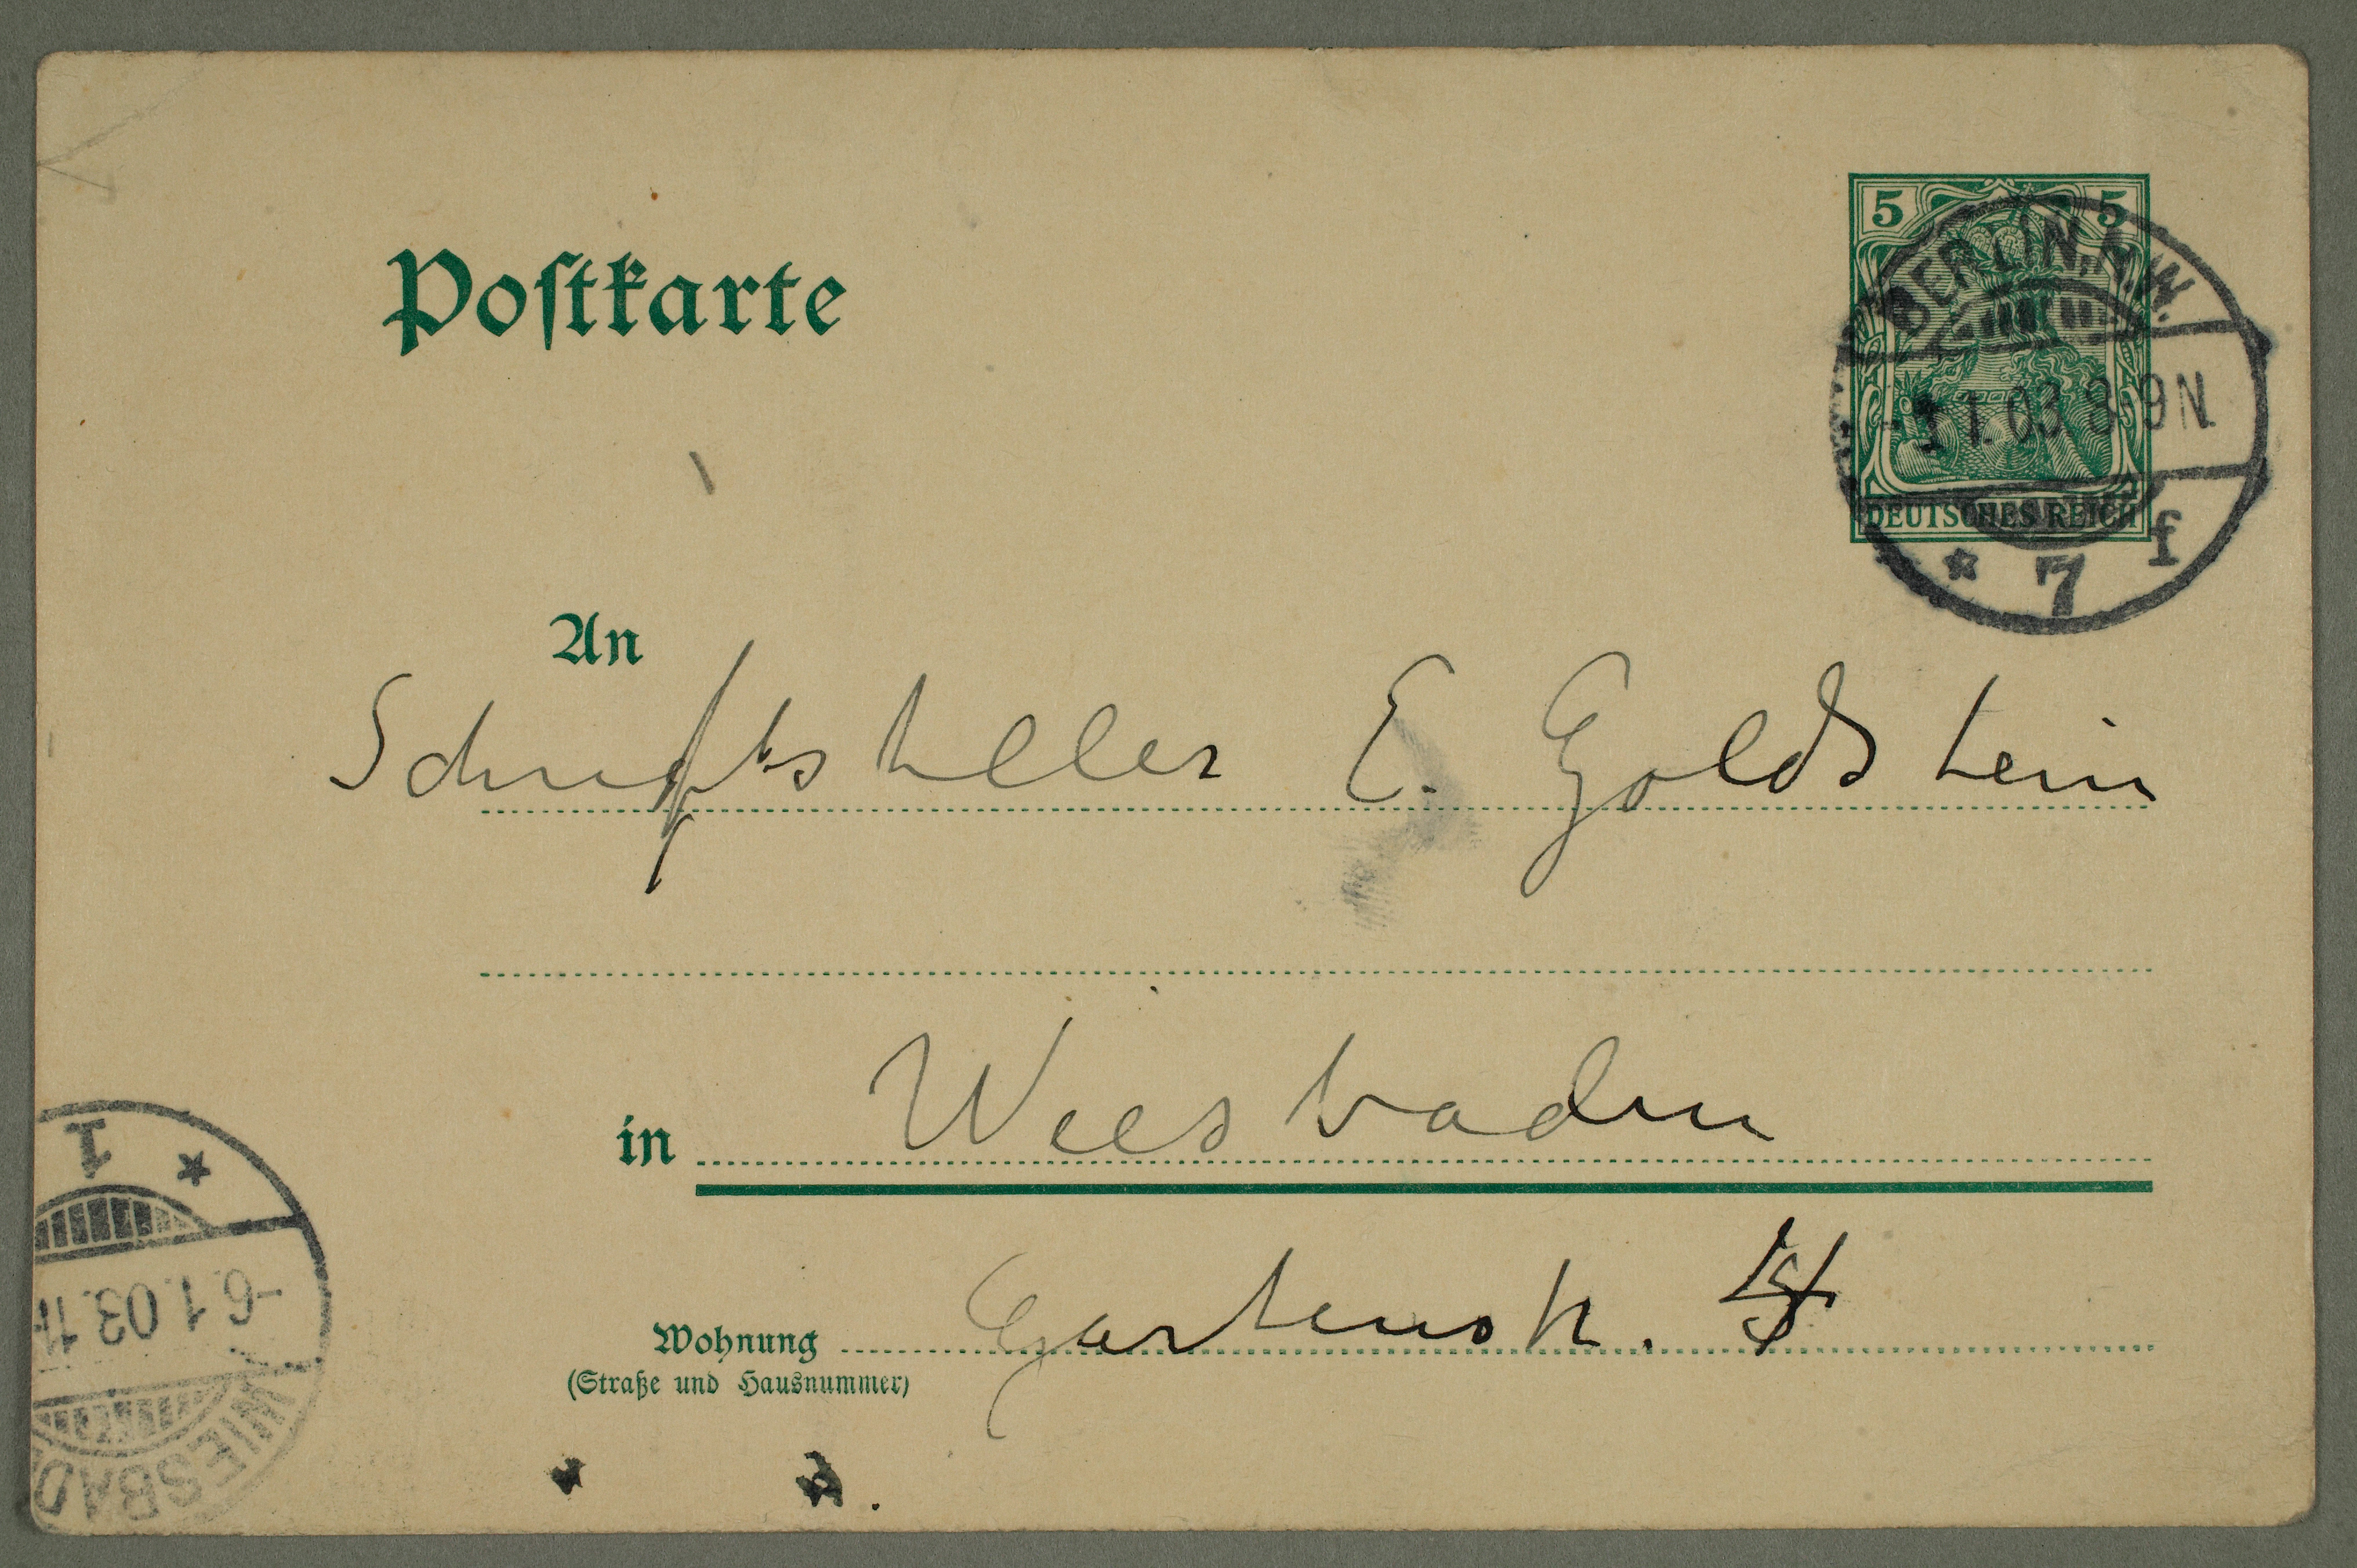 Postkarte
5 5
DEUTSCHES REICH
BERLIN, N.W.
1.03 8-9N.
* 7 f
An
Schriftsteller E. Goldstein
in Wiesbaden
Wohnung Gartenstr.
(Straße und Hausnummer)
1 *
-6.1.03.11
WIESBAD